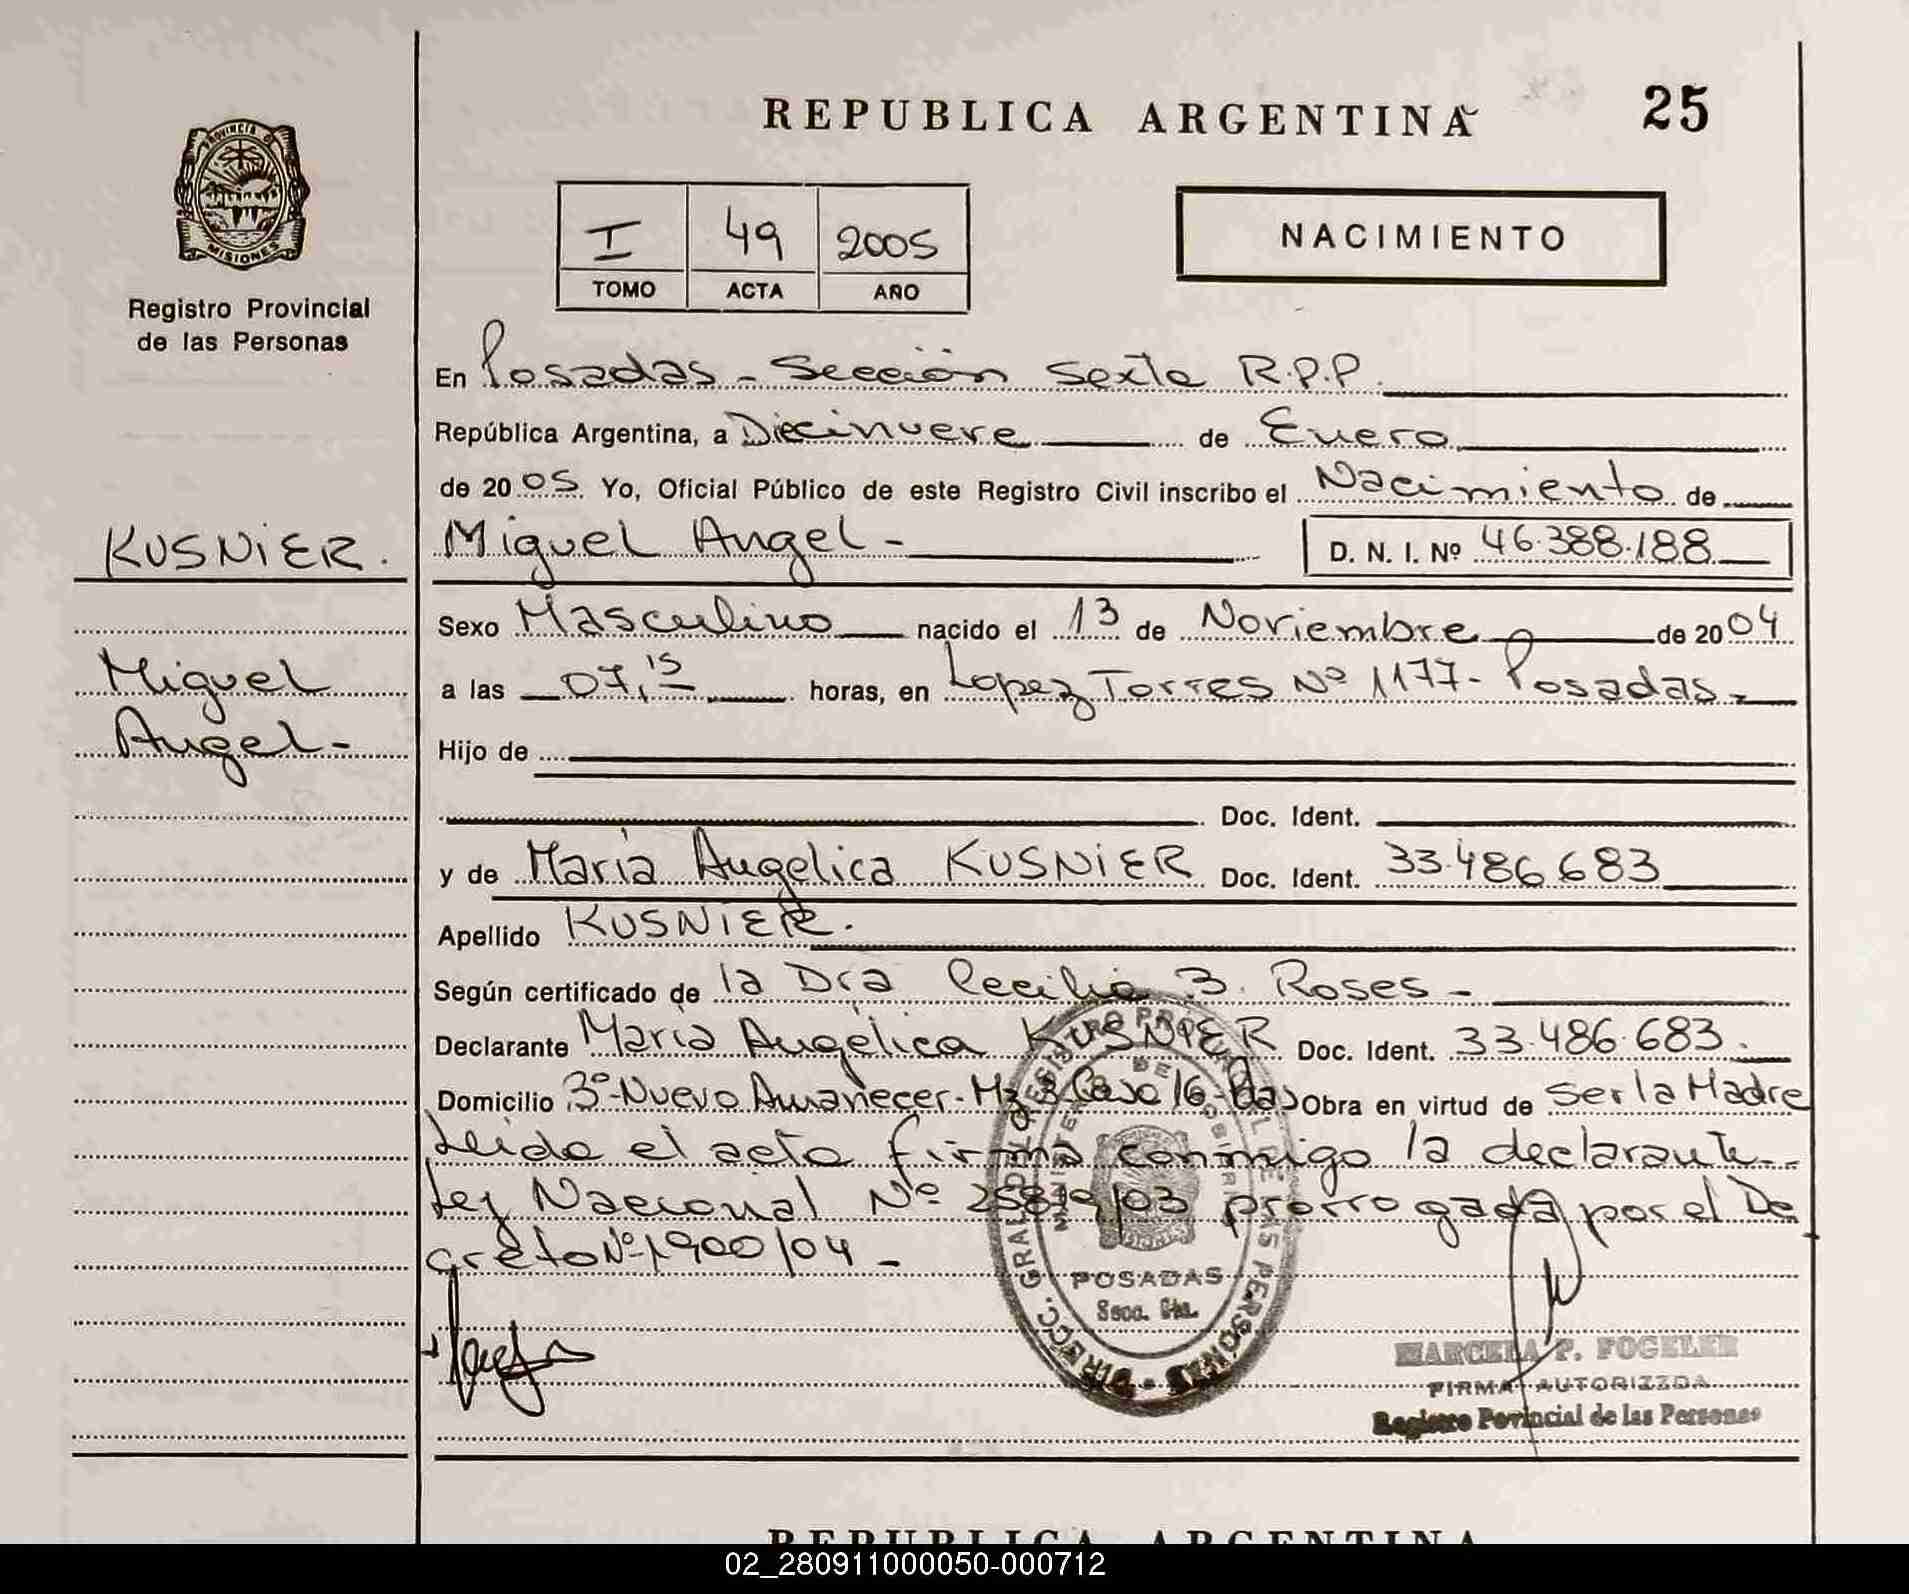 REPUBLICA ARGENTINA
25
PROVINCIA DE
MISIONES
Registro Provincial
de las Personas
I 49 2005
TOMO ACTA AÑO
NACIMIENTO
En Posadas - Sección Sexta R.P.P.
República Argentina, a Diecinueve de Enero
de 2005 Yo, Oficial Público de este Registro Civil inscribo el Nacimiento de
KUSNIER.
Miguel Angel -
D. N. I. Nº 46.388.188
Sexo Masculino nacido el 13 de Noviembre de 2004
Miguel
Angel -
a las 07,15 horas, en Lopez Torres Nº 1177 - Posadas -
Hijo de
Doc. Ident.
y de Maria Angelica KUSNIER Doc. Ident. 33.486.683
Apellido KUSNIER.
Según certificado de la Dra Cecilia B. Roses -
Declarante Maria Angelica KUSNIER Doc. Ident. 33.486.683.
Domicilio 3º - Nuevo Amanecer - Mz 3 Casa 16 - Pdas Obra en virtud de ser la Madre
Leida el acta firma conmigo la declarante -
Ley Nacional Nº 25819/03 prorrogada por el De
creto Nº 1900/04 -
DIRECC. GRAL. DEL REGISTRO PROVINCIAL DE LAS PERSONAS
POSADAS
Secc. 6ta.
MARCELA P. FOGELER
FIRMA AUTORIZADA
Registro Povincial de las Personas
REPUBLICA ARGENTINA
02_280911000050-000712